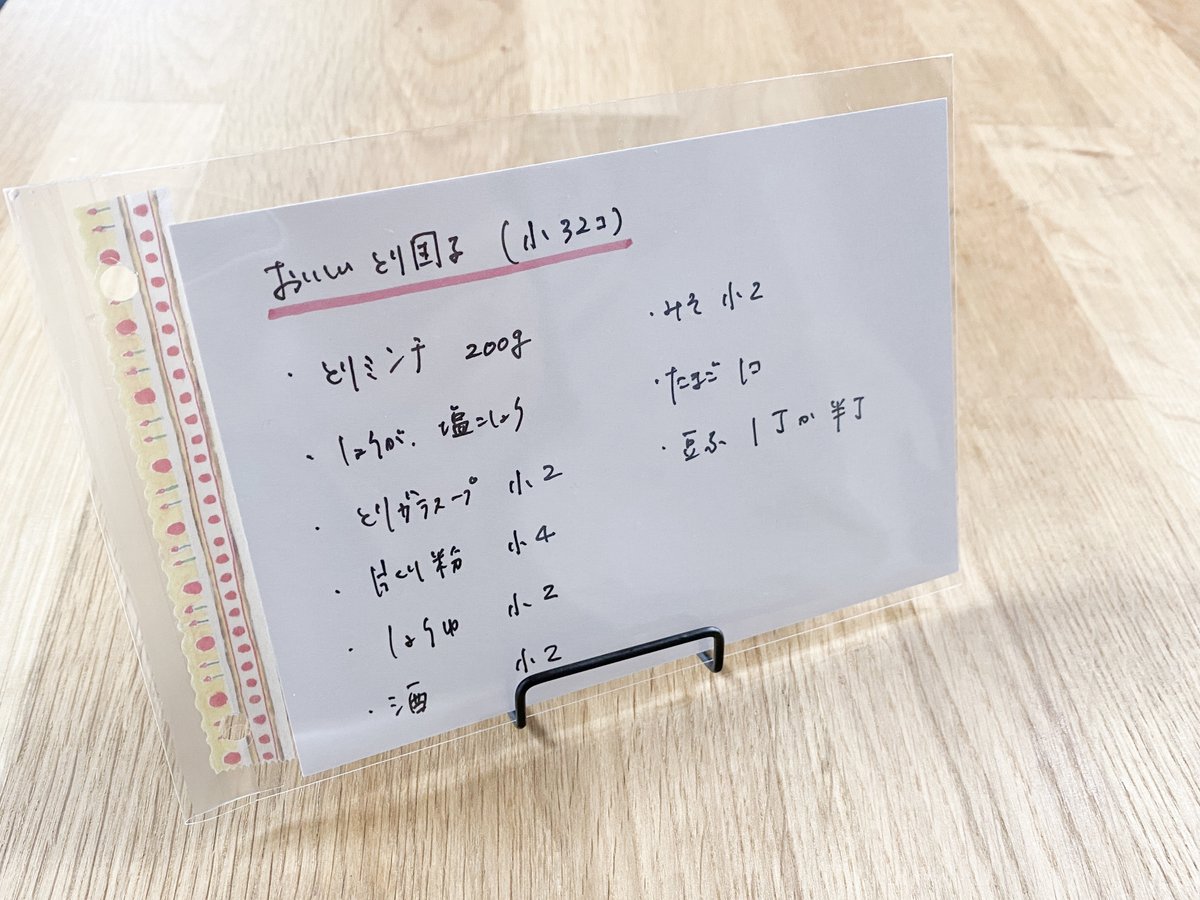 おいしい とり団子 (小 32コ)
・とりミンチ 200g
・しょうが、塩こしょう
・とりガラスープ 小2
・片くり粉 小4
・しょうゆ 小2
・酒 小2
・みそ 小2
・たまご 1コ
・豆ふ 1丁か半丁